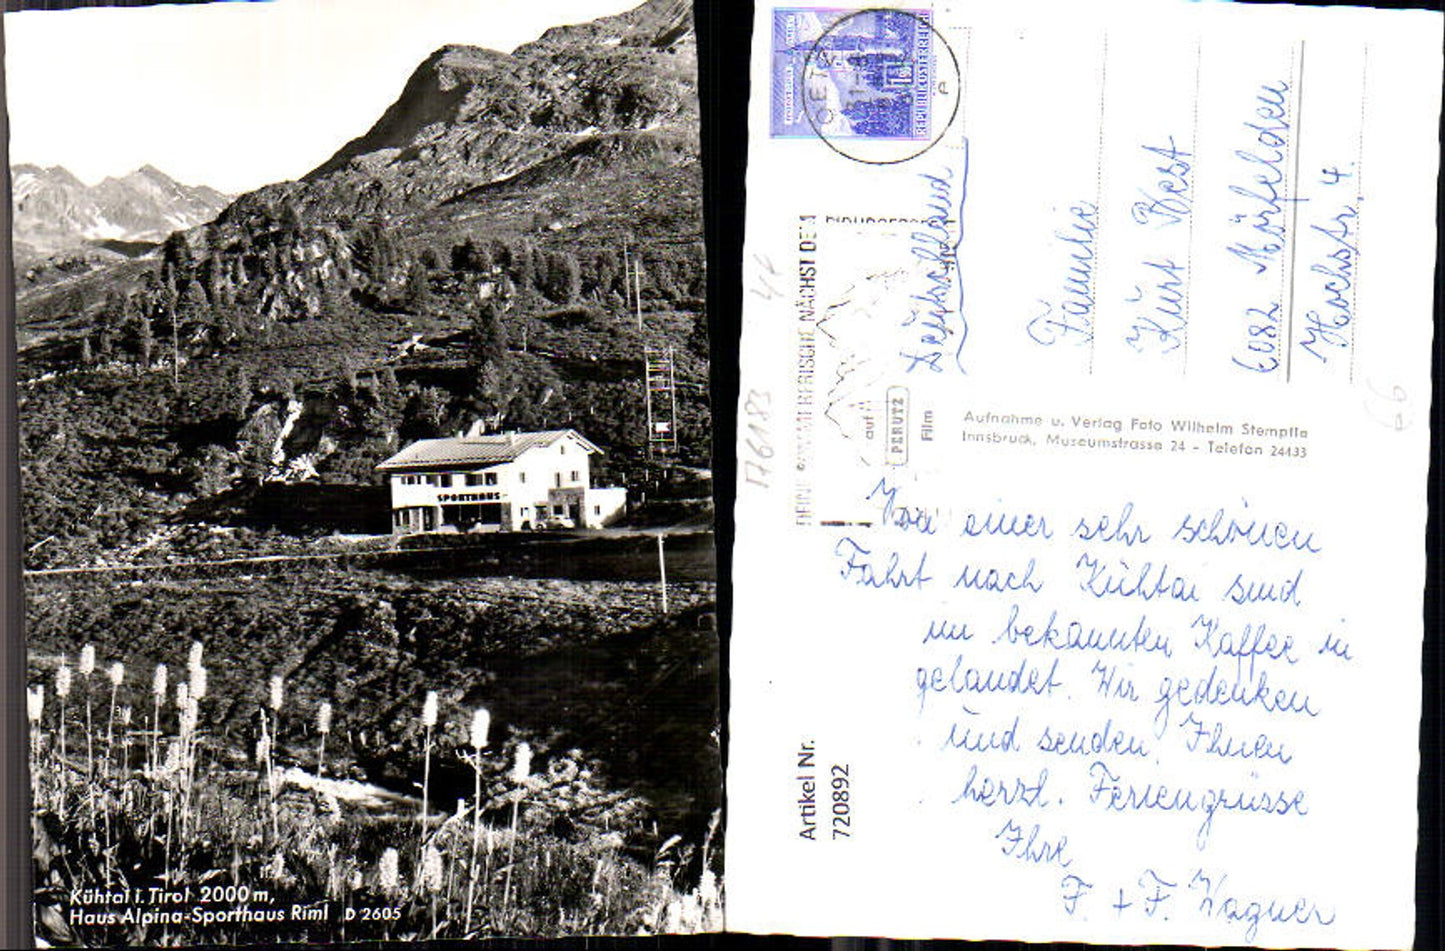 SPORTHAUS
Kühtai i. Tirol 2000 m,
Haus Alpina-Sporthaus Riml D 2605
REPUBLIK ÖSTERREICH
OETZ
NÄCHST DEM
auf
PERUTZ
Film
Deutschland
Familie
Kurt Best
6082 Mörfelden
Hochstr. 4.
Aufnahme u. Verlag Foto Wilhelm Stempfle
Innsbruck, Museumstrasse 24 - Telefon 24433
176183
66
Von einer sehr schönen
Fahrt nach Kühtai sind
im bekannten Kaffee in
gelandet. Wir gedenken
und senden Ihnen
herzl. Feriengrüsse
Ihre
F. + F. Wagner
Artikel Nr.
720892